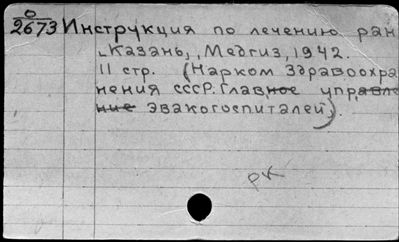 О
2673 Инструкция по лечению ран
Казань, Медгиз, 1942.
11 стр. (Нарком Здравоохра
нения СССР. Главное управле
ние эвакогоспиталей).
РК